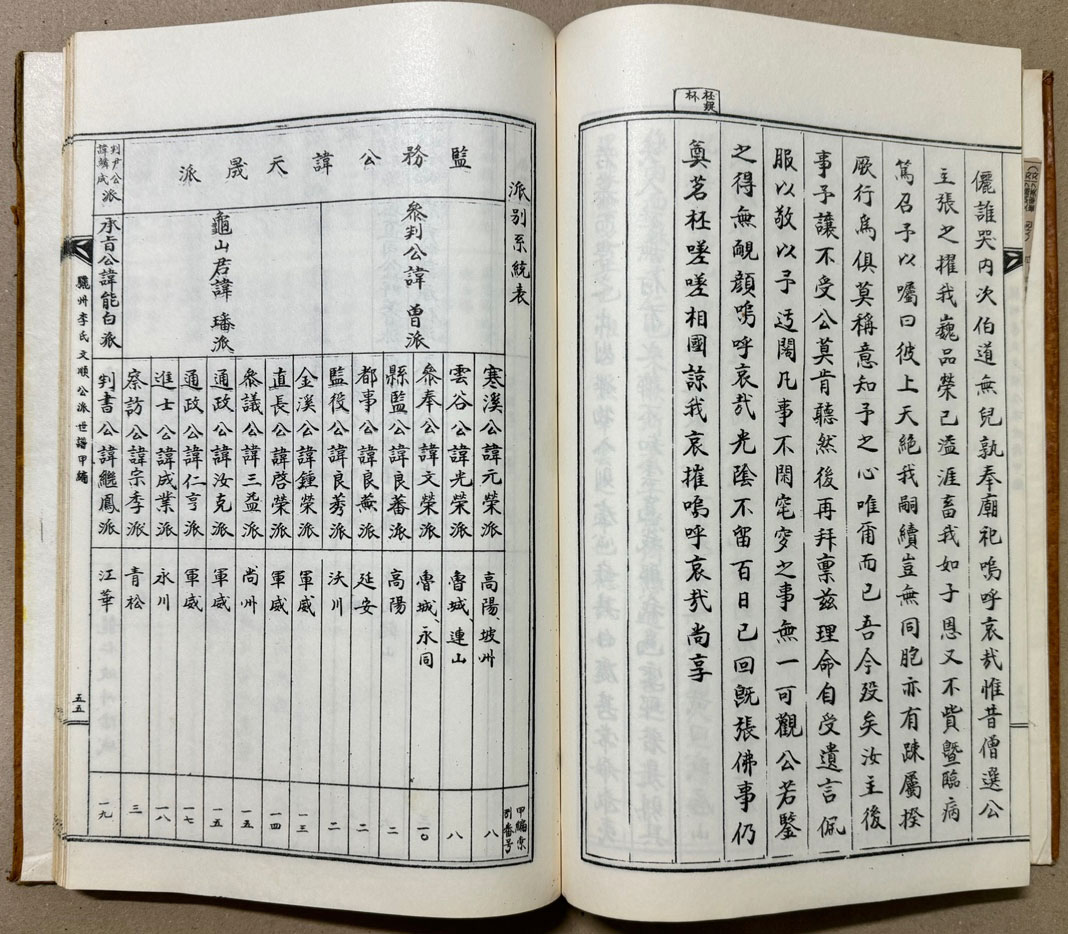 儷誰哭内次伯道無兒孰奉廟祀嗚呼哀哉惟昔僧選公
主張之擢我巍品榮已溢涯畜我如子恩又不貲曁臨病
篤召予以囑曰彼上天絶我嗣續豈無同胞亦有踈屬揆
厥行爲俱莫稱意知予之心唯爾而已吾今歿矣汝主後
事予讓不受公莫肯聽然後再拜禀兹理命自受遺言佩
服以敬以予迃闊凡事不閑窀穸之事無一可觀公若鑒
之得無靦顔嗚呼哀哉光陰不留百日已回旣張佛事仍
奠茗柸嗟嗟相國諒我哀摧嗚呼哀哉尚享
派別系統表
甲編索別番号
監務公諱天晟派
判尹公諱鱗成派
叅判公諱曾派
龜山君諱璠派
承旨公諱能白派
寒溪公諱元榮派 高陽、坡州 八
雲谷公諱光榮派 魯城、連山 八
叅奉公諱文榮派 魯城、永同 一〇
縣監公諱良蕃派 高陽 二
都事公諱良蕪派 延安 二
監役公諱良莠派 沃川 二
金溪公諱鍾榮派 軍威 一三
直長公諱啓榮派 軍威 一四
叅議公諱三益派 尚州 一五
通政公諱汝克派 軍威 一五
通政公諱仁亨派 軍威 一七
進士公諱成業派 永川 一八
察訪公諱宗季派 青松 三
判書公諱繼鳳派 江華 一九
驪州李氏文順公派世譜甲編
五五